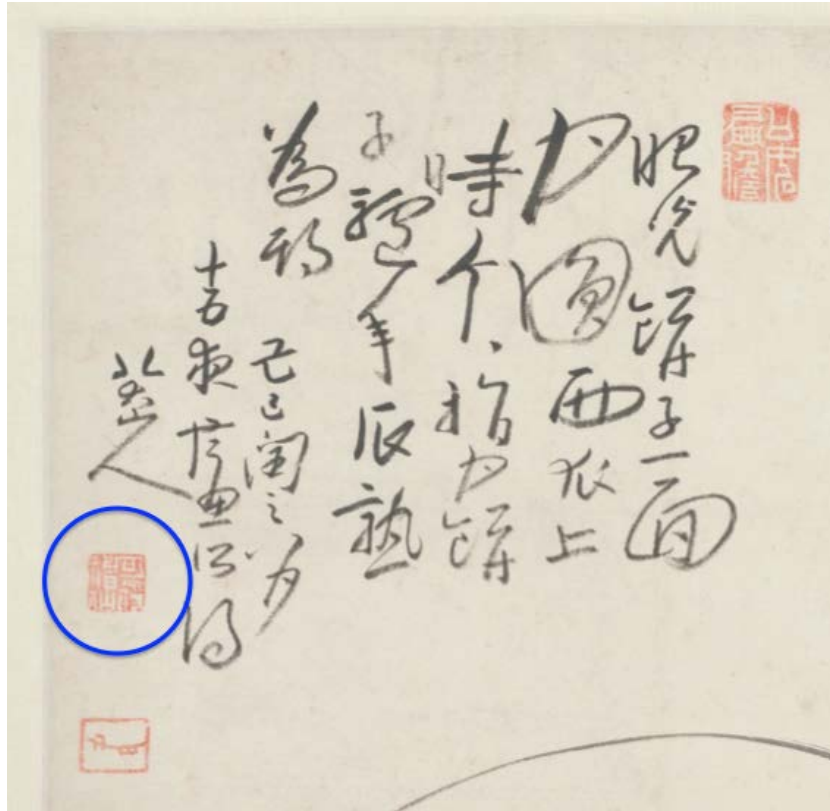 眼光餅子一面
月圓西瓜上
時个々指月餅
子驢年瓜熟
為期
己巳閏之八月
十五夜信畫所得
八大山人